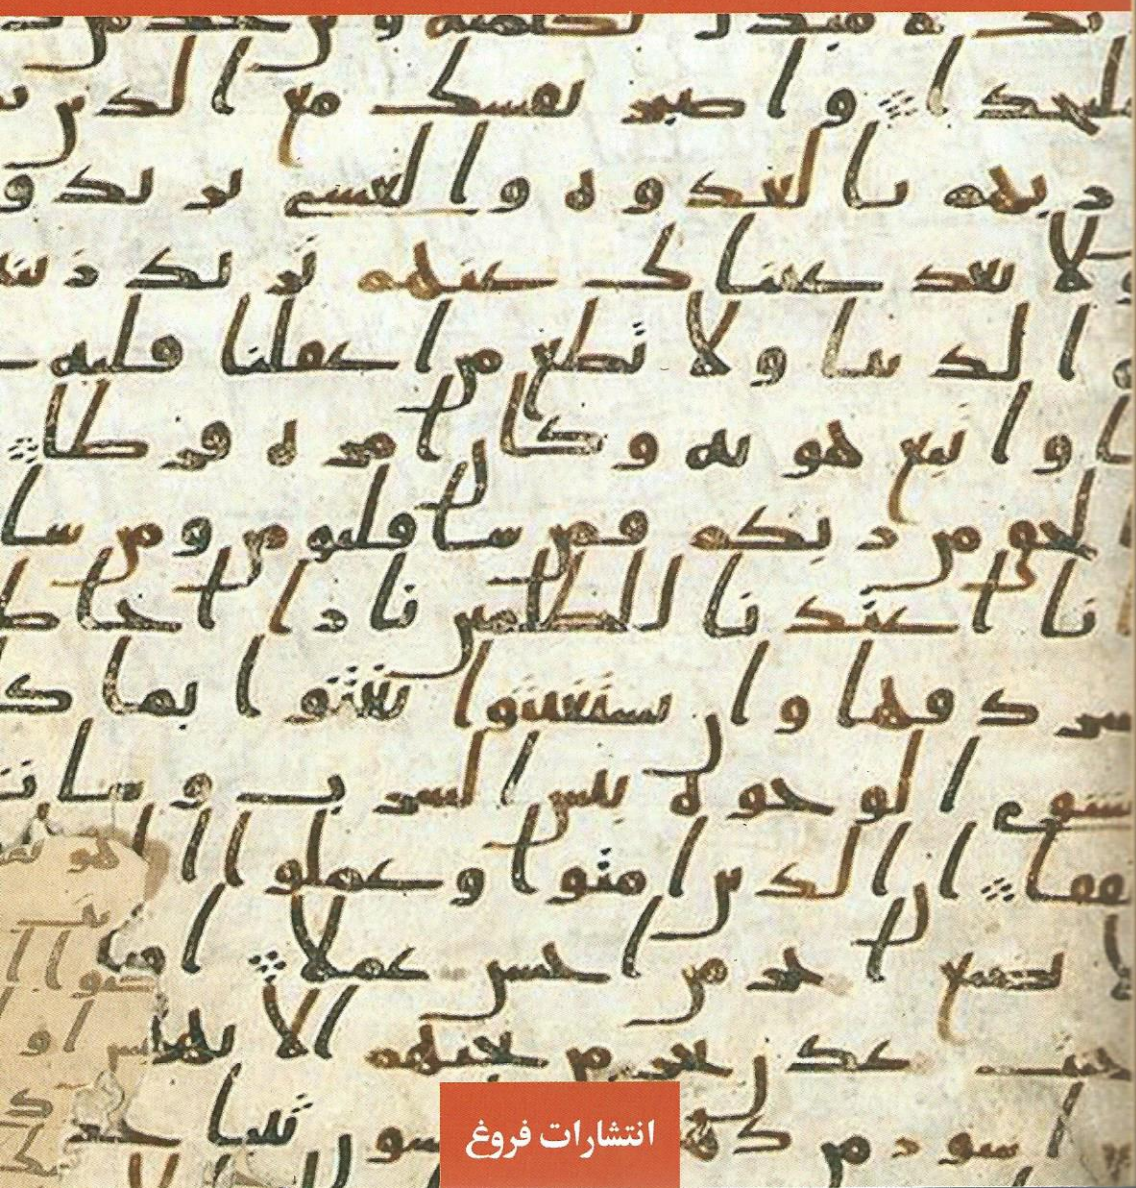 مبدل لكلمته ولن تجد من
ملتحدا واصبر نفسك مع الذين
ربهم بالغدوه والعشي يريدو
ولا تعد عيناك عنهم تريد زين
الدنيا ولا تطع من اغفلنا قلبه
واتبع هويه وكان امره فرطا
الحق من ربكم فمن شا فليومن ومن شا
انا اعتدنا للظلمين نارا احاط
سردقها وان يستغيثوا يغثوا بما ك
يشوي الوجوه بيس الشرب وسات
ان الذين امنوا وعملوا ا
نضيع اجر من احسن عملا
جنت عدن تجري من تحتهم الانهر
اسور من
انتشارات فروغ